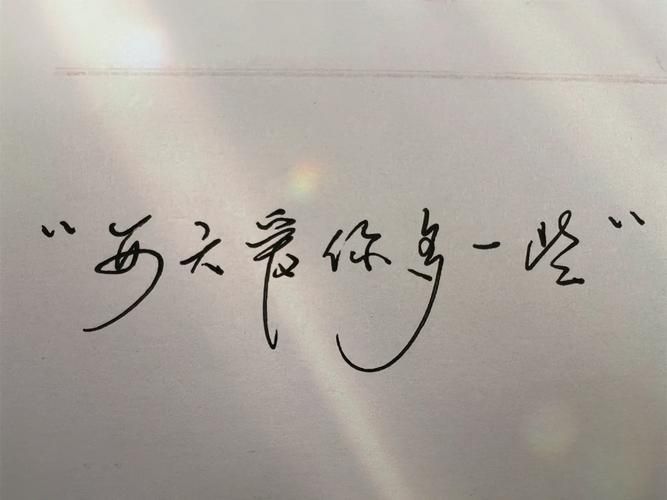 “每天爱你多一些”